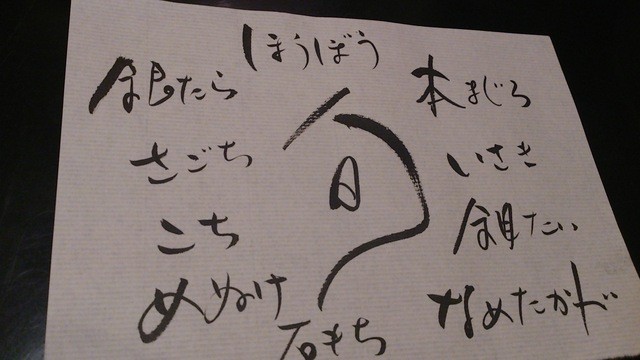 ほうぼう
銀たら
さごち
こち
めぬけ
旬
本まぐろ
いさき
金目たい
なめたかれい
石もち